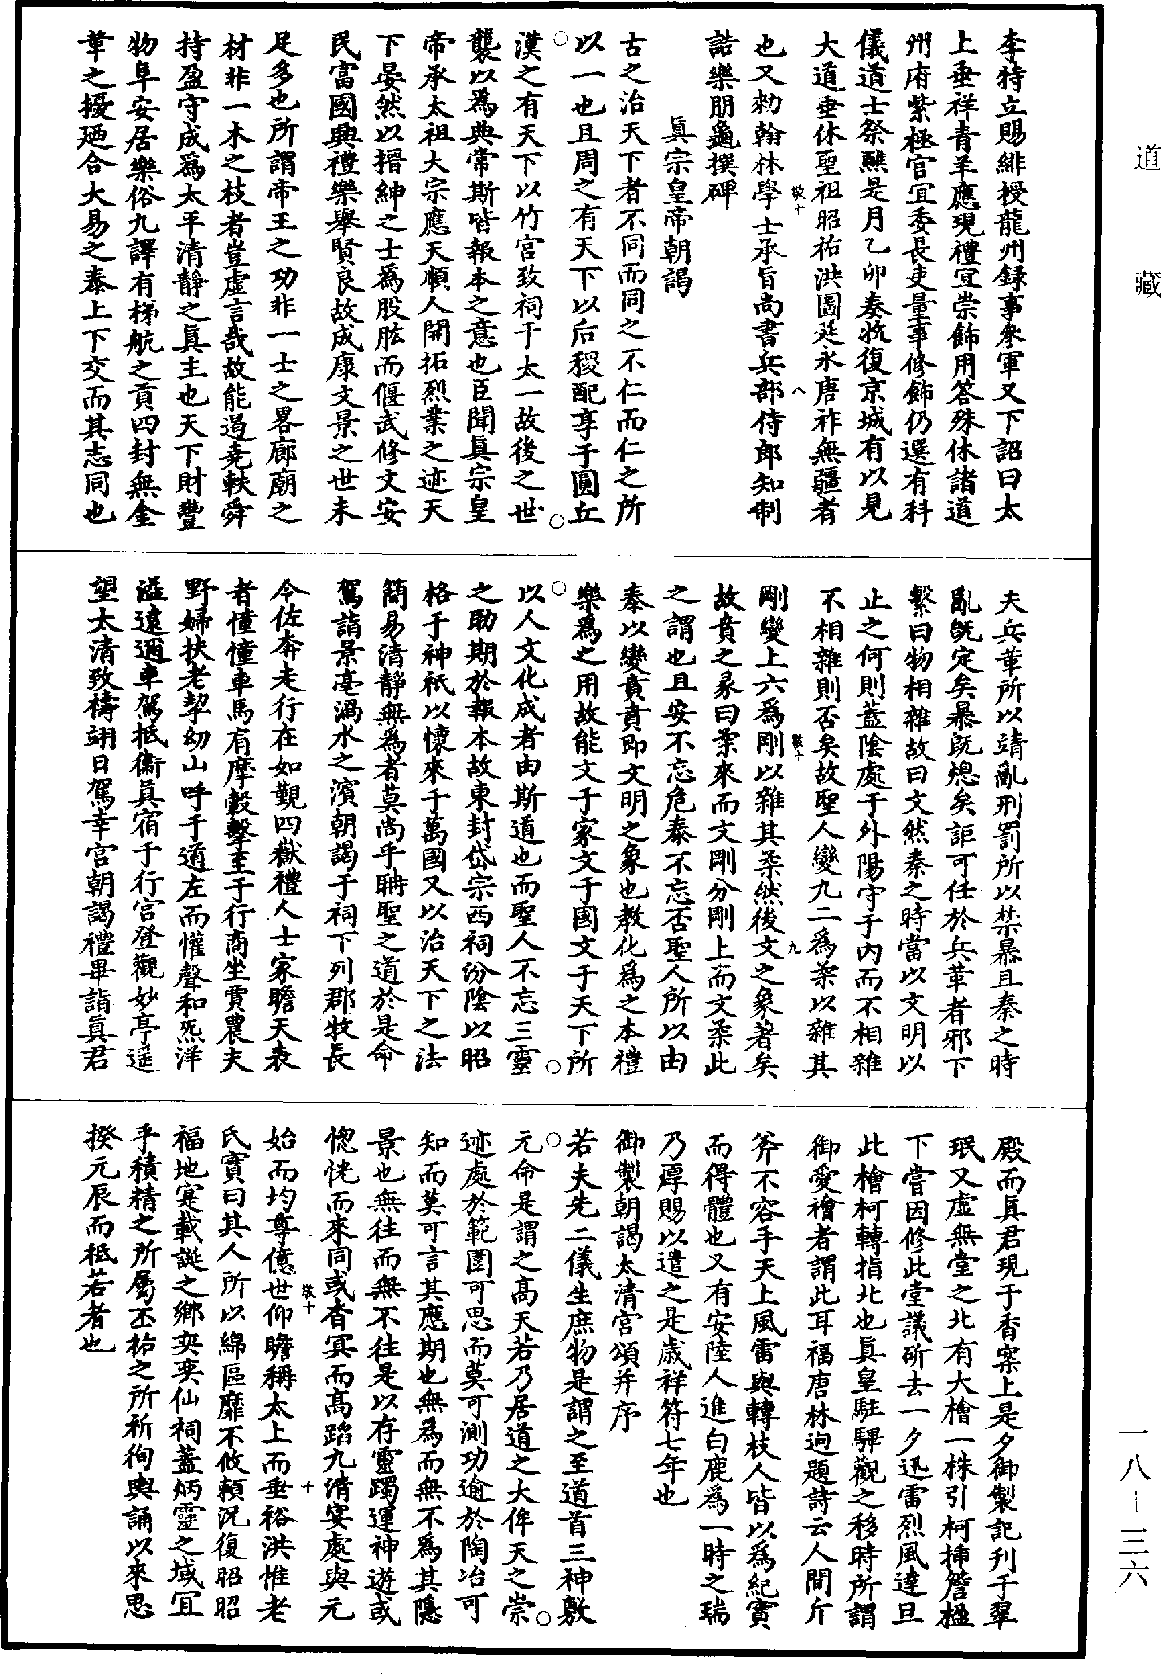 道藏
李特立賜緋授龍州録事參軍又下詔曰太
上垂祥青羊應現禮宜崇飾用答殊休諸道
州府紫極宮宜委長吏量事修飾仍選有科
儀道士祭醮是月乙卯奏收復京城有以見
大道垂休聖祖昭祐洪圖延永唐祚無疆者
也又勅翰林學士承旨尚書兵部侍郎知制
誥樂朋龜撰碑
真宗皇帝朝謁
古之治天下者不同而同之不仁而仁之所
以一也且周之有天下以后稷配享于圓丘
漢之有天下以竹宮致祠于太一故後之世
襲以為典常斯皆報本之意也臣聞真宗皇
帝承太祖大宗應天順人開拓烈業之迹天
下晏然以搢紳之士為股肱而偃武修文安
民富國興禮樂舉賢良故成康文景之世未
足多也所謂帝王之功非一士之畧廊廟之
材非一木之枝者豈虛言哉故能過堯軼舜
持盈守成為太平清靜之真主也天下財豐
物阜安居樂俗九譯有梯航之貢四封無金
革之擾廼合大易之泰上下交而其志同也
夫兵革所以靖亂刑罰所以禁暴且泰之時
亂既定矣暴既熄矣詎可任於兵革者邪下
繫曰物相雜故曰文然泰之時當以文明以
止之何則蓋陰處于外陽守于内而不相雜
不相雜則否矣故聖人變九二為柔以雜其
剛變上六為剛以雜其柔然後文之象著矣
故賁之彖曰柔來而文剛分剛上而文柔此
之謂也且安不忘危泰不忘否聖人所以由
泰以變賁賁即文明之象也教化為之本禮
樂為之用故能文于家文于國文于天下所
以人文化成者由斯道也而聖人不忘三靈
之助期於報本故東封岱宗西祠汾陰以昭
格于神祇以懷來于萬國又以治天下之法
簡易清靜無為者莫尚乎聃聖之道於是命
駕詣景亳渦水之濱朝謁于祠下列郡牧長
令佐奔走行在如覲四嶽禮人士家瞻天表
者憧憧車馬有摩轂擊至于行商坐賈農夫
野婦扶老挈幼山呼于道左而懽聲和炁洋
溢遠邇車駕抵衞真宿于行宮登觀妙亭遥
望太清致禱翊日駕幸宮朝謁禮畢詣真君
殿而真君現于香案上是夕御製記刊于翠
珉又虛無堂之北有大檜一株引柯挿簷楹
下嘗因修此堂議斫去一夕迅雷烈風達旦
此檜柯轉指北也真皇駐驆觀之移時所謂
御愛檜者謂此耳福唐林逈題詩云人間斤
斧不容手天上風雷與轉枝人皆以為紀實
而得體也又有安陸人進白鹿為一時之瑞
乃厚賜以遣之是歲祥符七年也
御製朝謁太清宮頌并序
若夫先二儀生庶物是謂之至道首三神敷
元命是謂之高天若乃居道之大侔天之崇
迹處於範圍可思而莫可測功逾於陶冶可
知而莫可言其應期也無為而無不為其隱
景也無往而無不往是以存靈躅運神遊或
惚恍而來同或杳冥而高蹈九清宴處與元
始而均尊億世仰瞻稱太上而垂裕洪惟老
氏實曰其人所以綿區靡不攸賴況復昭昭
福地寔載誕之鄉奕奕仙祠蓋炳靈之域冝
乎積精之所屬丕祐之所祈徇輿誦以來思
揆元辰而祗若者也
敢十
八
敢十
九
敢十
十
一八—三六